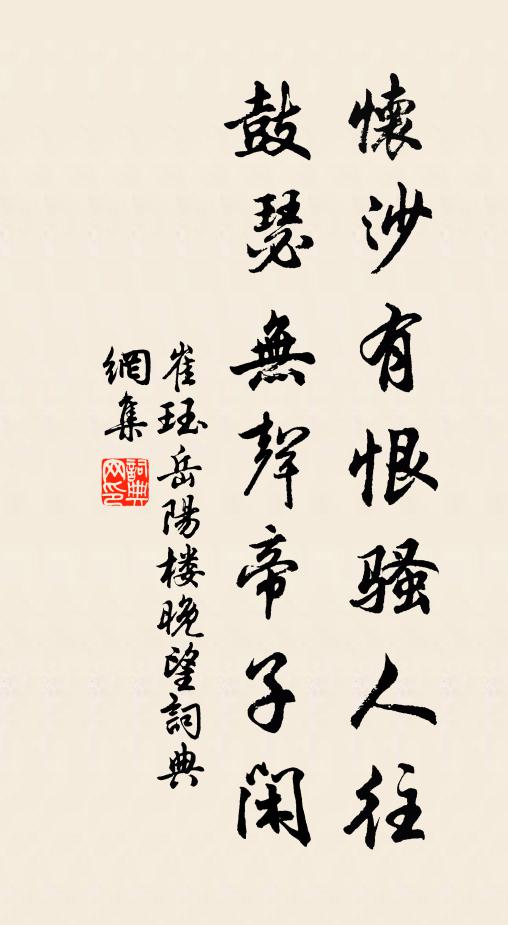 懷沙有恨騷人往
鼓瑟無聲帝子閑
崔珏岳陽楼晚望詞典
網集
詞典
网印